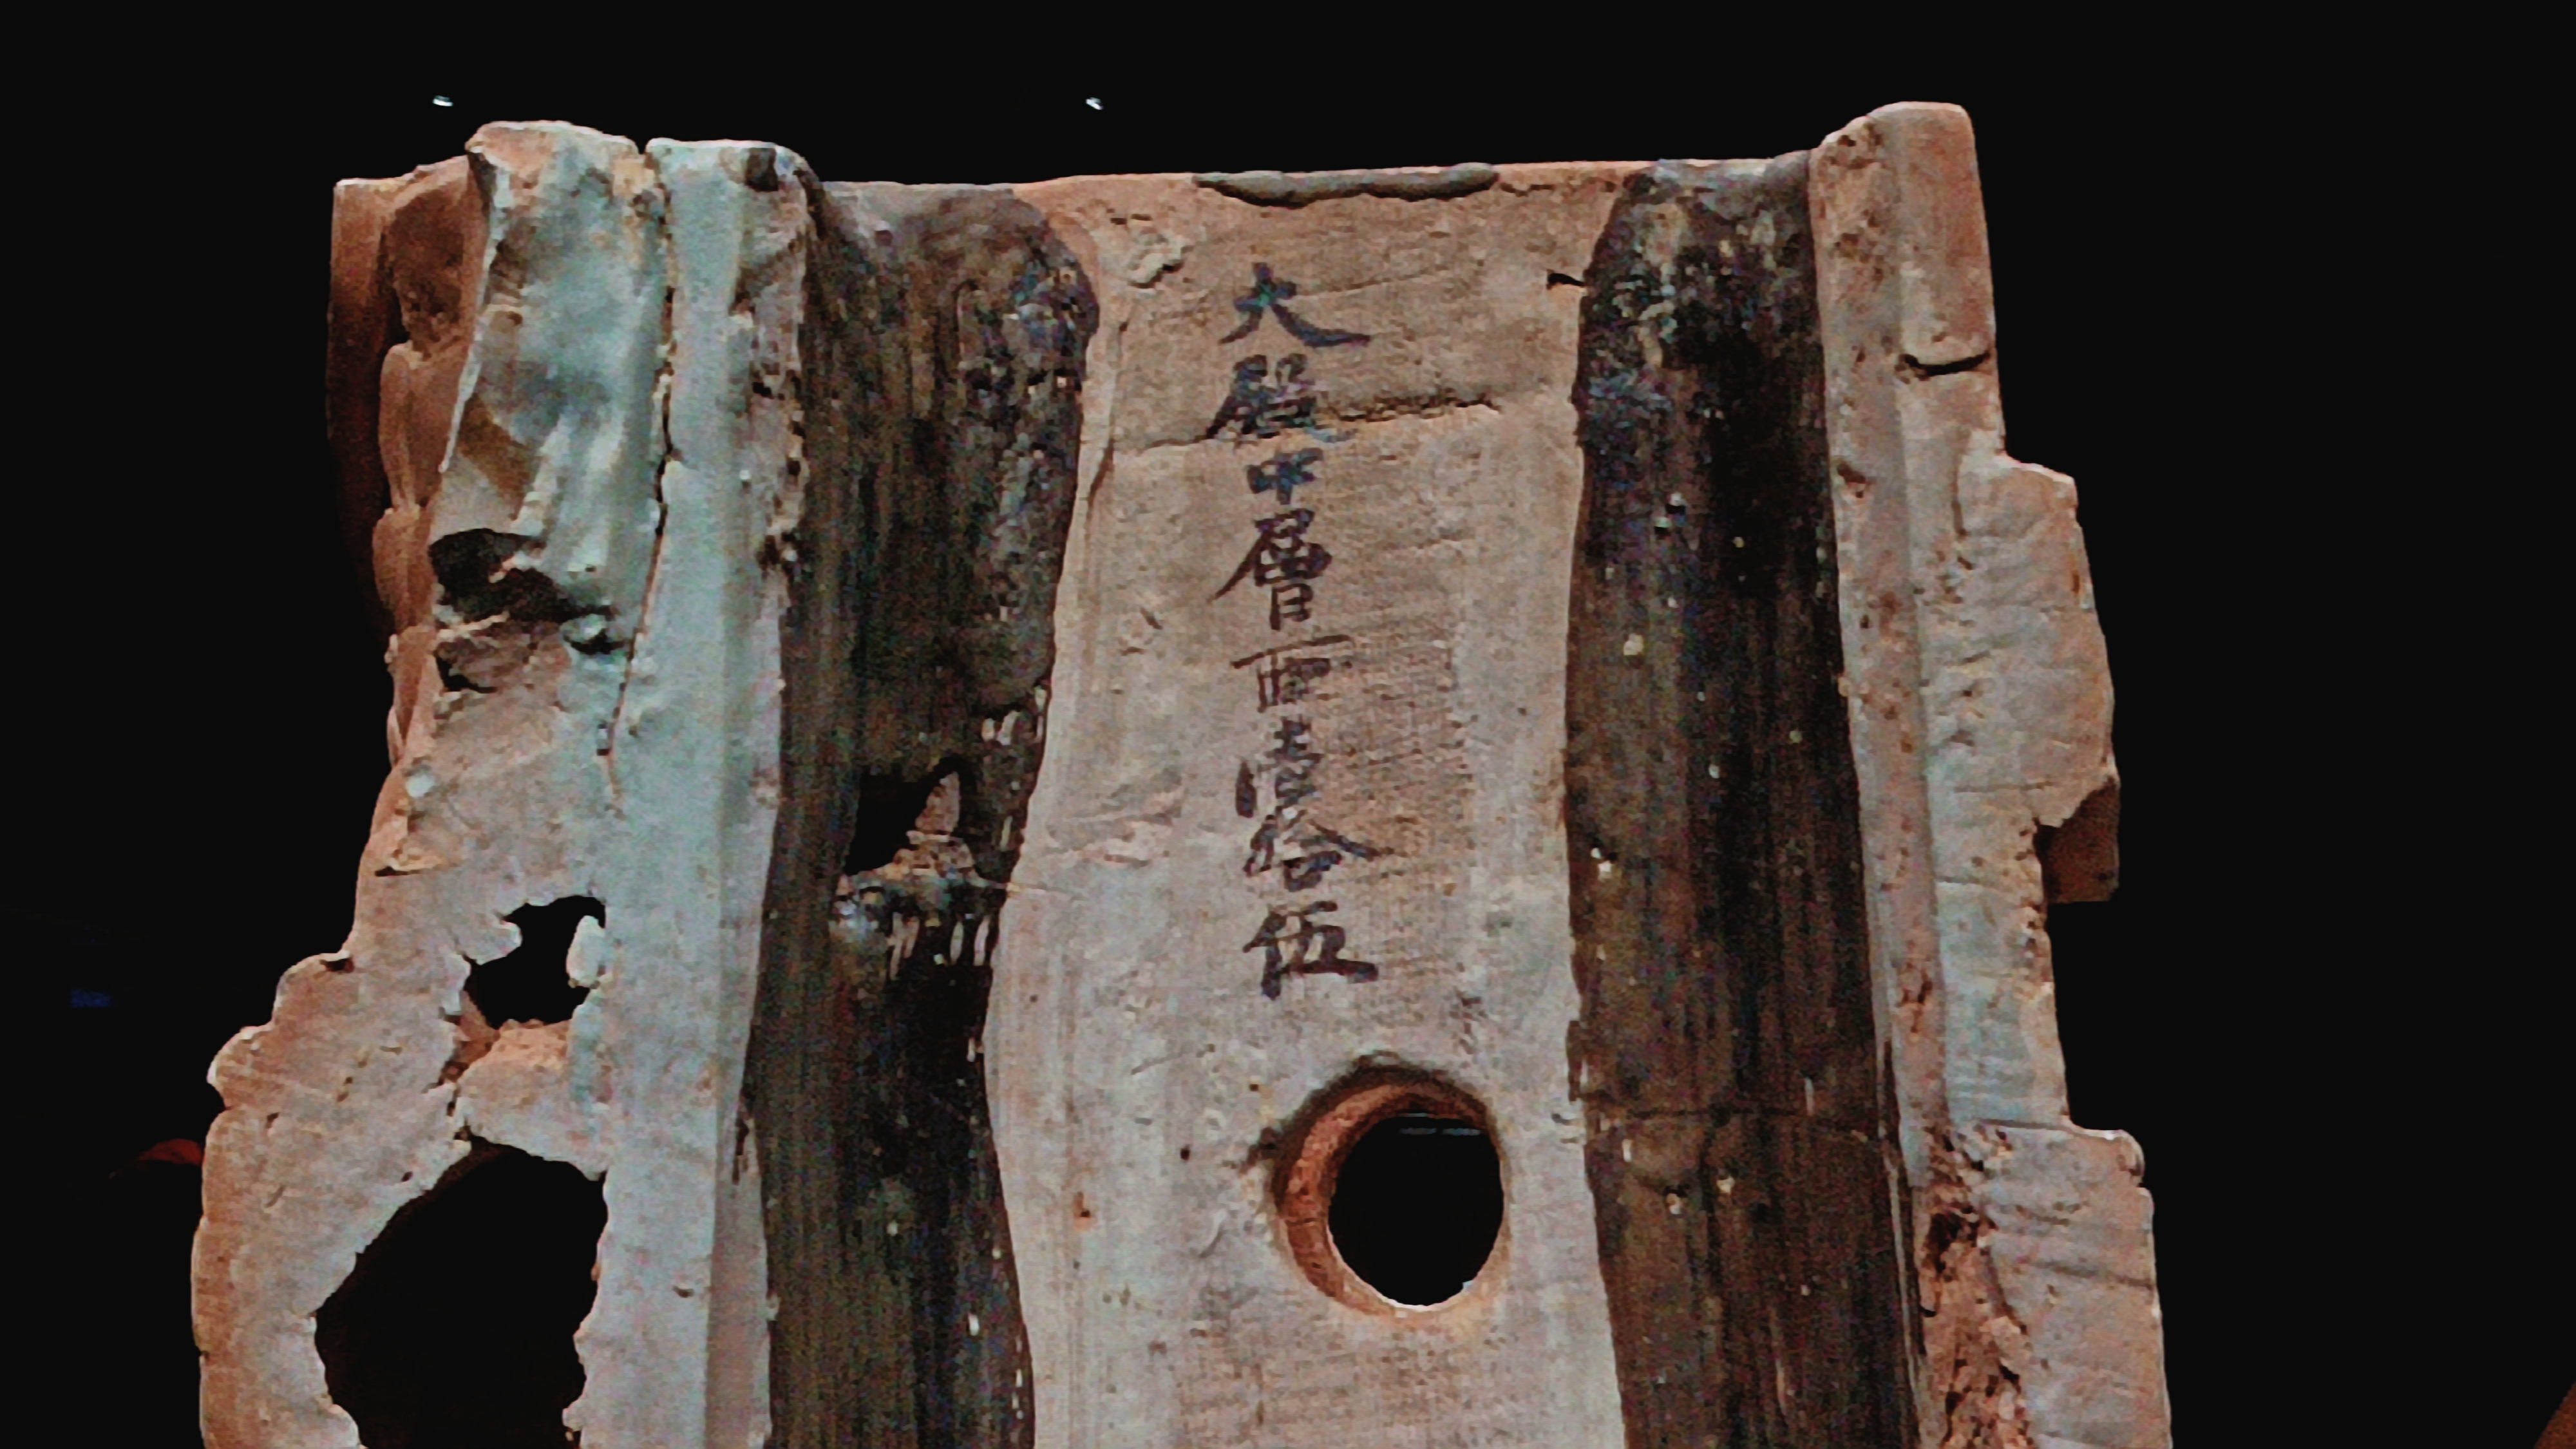 大殿中層西壹拾伍